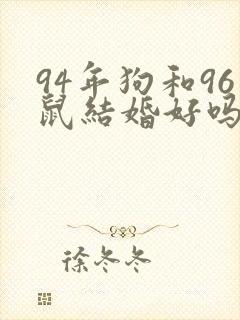 94年狗和96
鼠結婚好吗
徐冬冬